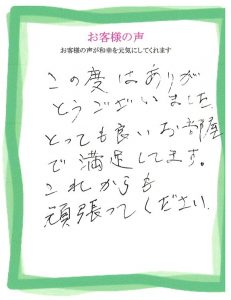 お客様の声
お客様の声が和幸を元気にしてくれます
この度はありが
とうございました
とっても良いお部屋
で満足してます。
これからも
頑張ってください.